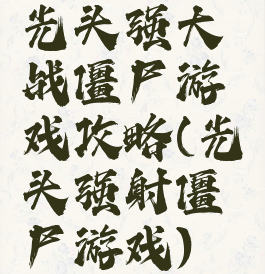 光头强大
战僵尸游
戏攻略(光
头强射僵
尸游戏)